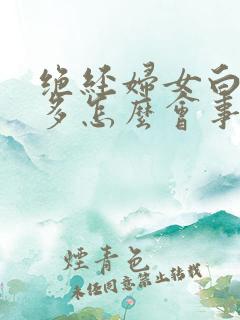 绝经婦女白
多怎麽會事
煙青色
未经同意禁止转载